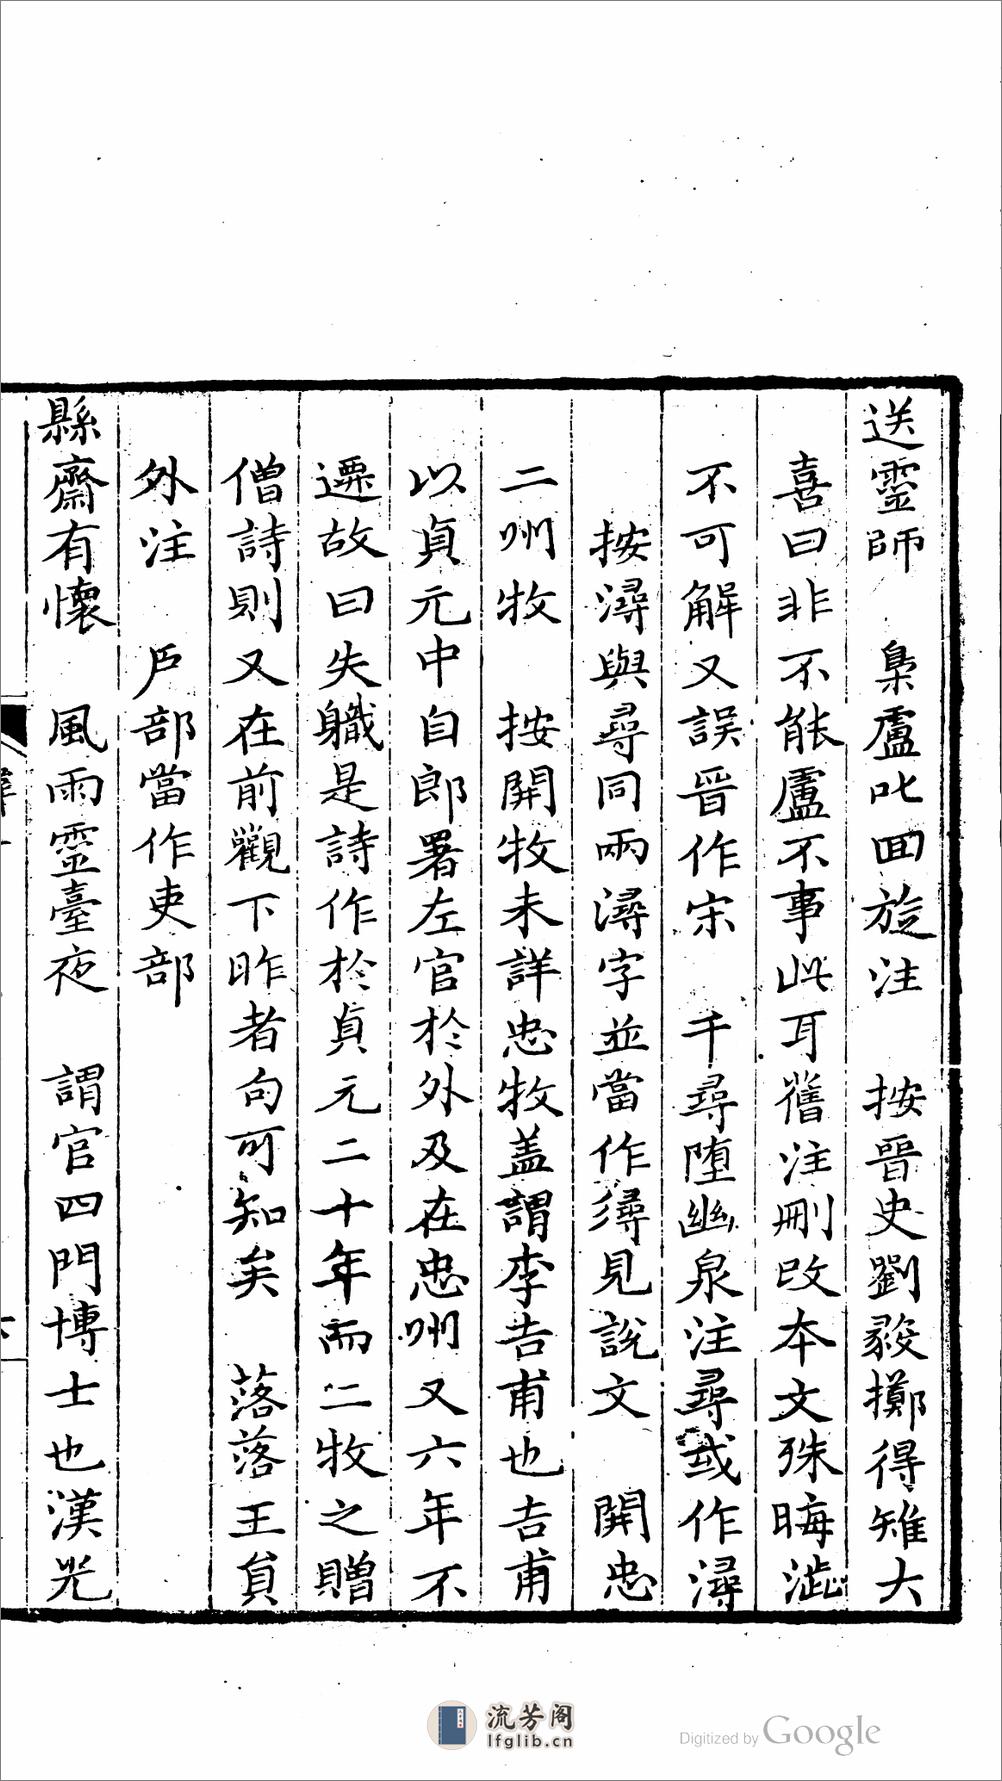 送靈師　梟盧叱回旋注　按晉史劉毅擲得雉大
喜曰非不能盧不事此耳舊注刪改本文殊晦澁
不可解又誤晉作宋　千尋墮幽泉注尋或作潯
按潯與尋同兩潯字並當作㝷見說文　開忠
二州牧　按開牧未詳忠牧盖謂李吉甫也吉甫
以貞元中自郎署左官於外及在忠州又六年不
遷故曰失職是詩作於貞元二十年而二牧之贈
僧詩則又在前觀下昨者句可知矣　落落王員
外注　戶部當作吏部
縣齋有懷　風雨靈臺夜　謂官四門博士也漢光
流芳阁
lfglib.cn
Digitized by Google